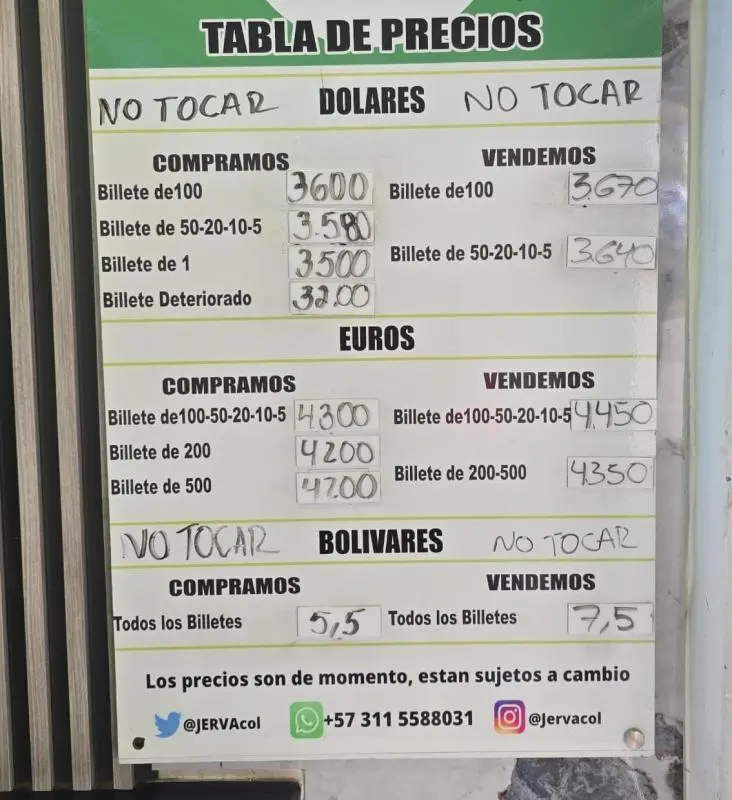 TABLA DE PRECIOS
NO TOCAR DOLARES NO TOCAR
COMPRAMOS VENDEMOS
Billete de100 3600 Billete de100 3.670
Billete de 50-20-10-5 3.580 Billete de 50-20-10-5 3.640
Billete de 1 3500
Billete Deteriorado 3200
EUROS
COMPRAMOS VENDEMOS
Billete de100-50-20-10-5 4300 Billete de100-50-20-10-5 4.450
Billete de 200 4200 Billete de 200-500 4350
Billete de 500 4200
NO TOCAR BOLIVARES NO TOCAR
COMPRAMOS VENDEMOS
Todos los Billetes 5,5 Todos los Billetes 7,5
Los precios son de momento, estan sujetos a cambio
@JERVAcol +57 311 5588031 @Jervacol